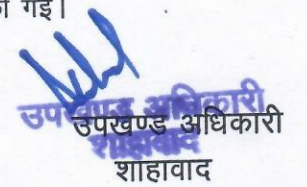 गई।
उपखण्ड अधिकारी
शाहावाद
उपखण्ड अधिकारी
शाहावाद